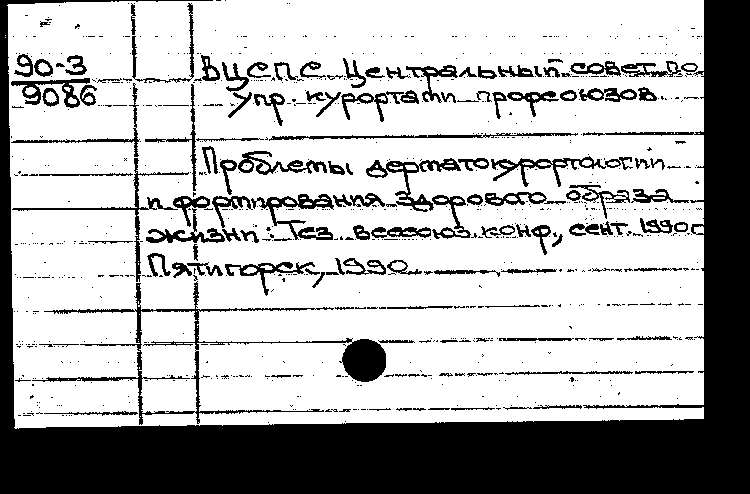 90-3
9086
ВЦСПС Центральный совет по
упр. курортами профсоюзов.
Проблемы дерматокурортологии
и формирования здорового образа
жизни: Тез. всесоюз. конф., сент. 1990г
Пятигорск, 1990